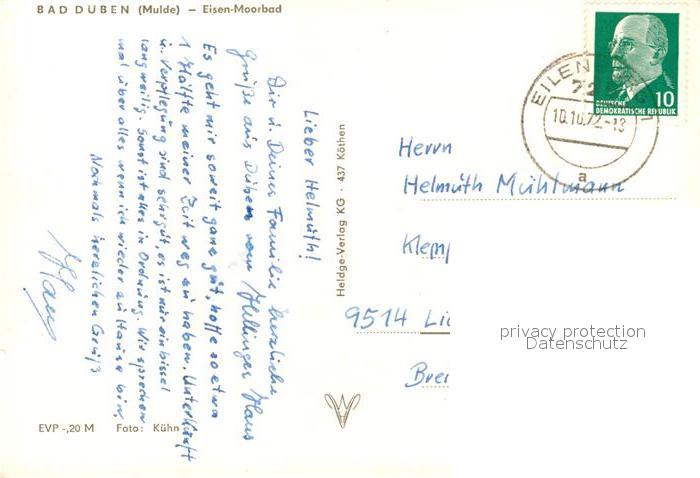 BAD DÜBEN (Mulde) – Eisen-Moorbad
Lieber Helmuth!
Dir u. Deiner Familie herzliche
Grüße aus Düben vom Hans
Es geht mir soweit ganz gut, hoffe so etwa
1 Hälfte meiner Zeit weg zu haben. Unterkunft
u. Verpflegung sind sehr gut, es ist nur ein bissel
langweilig sonst ist alles in Ordnung. Wir sprechen
mal über alles wenn ich wieder zu Hause bin.
Nochmals herzlichen Gruß
Hans
EVP -,20 M Foto: Kühn
Heldge-Verlag KG · 437 Köthen
EILEN
72
10.10.72-13
a
DEUTSCHE
DEMOKRATISCHE REPUBLIK
10
Herrn
Helmuth Mühlmann
Klemp
9514 Lic
Brei
privacy protection
Datenschutz